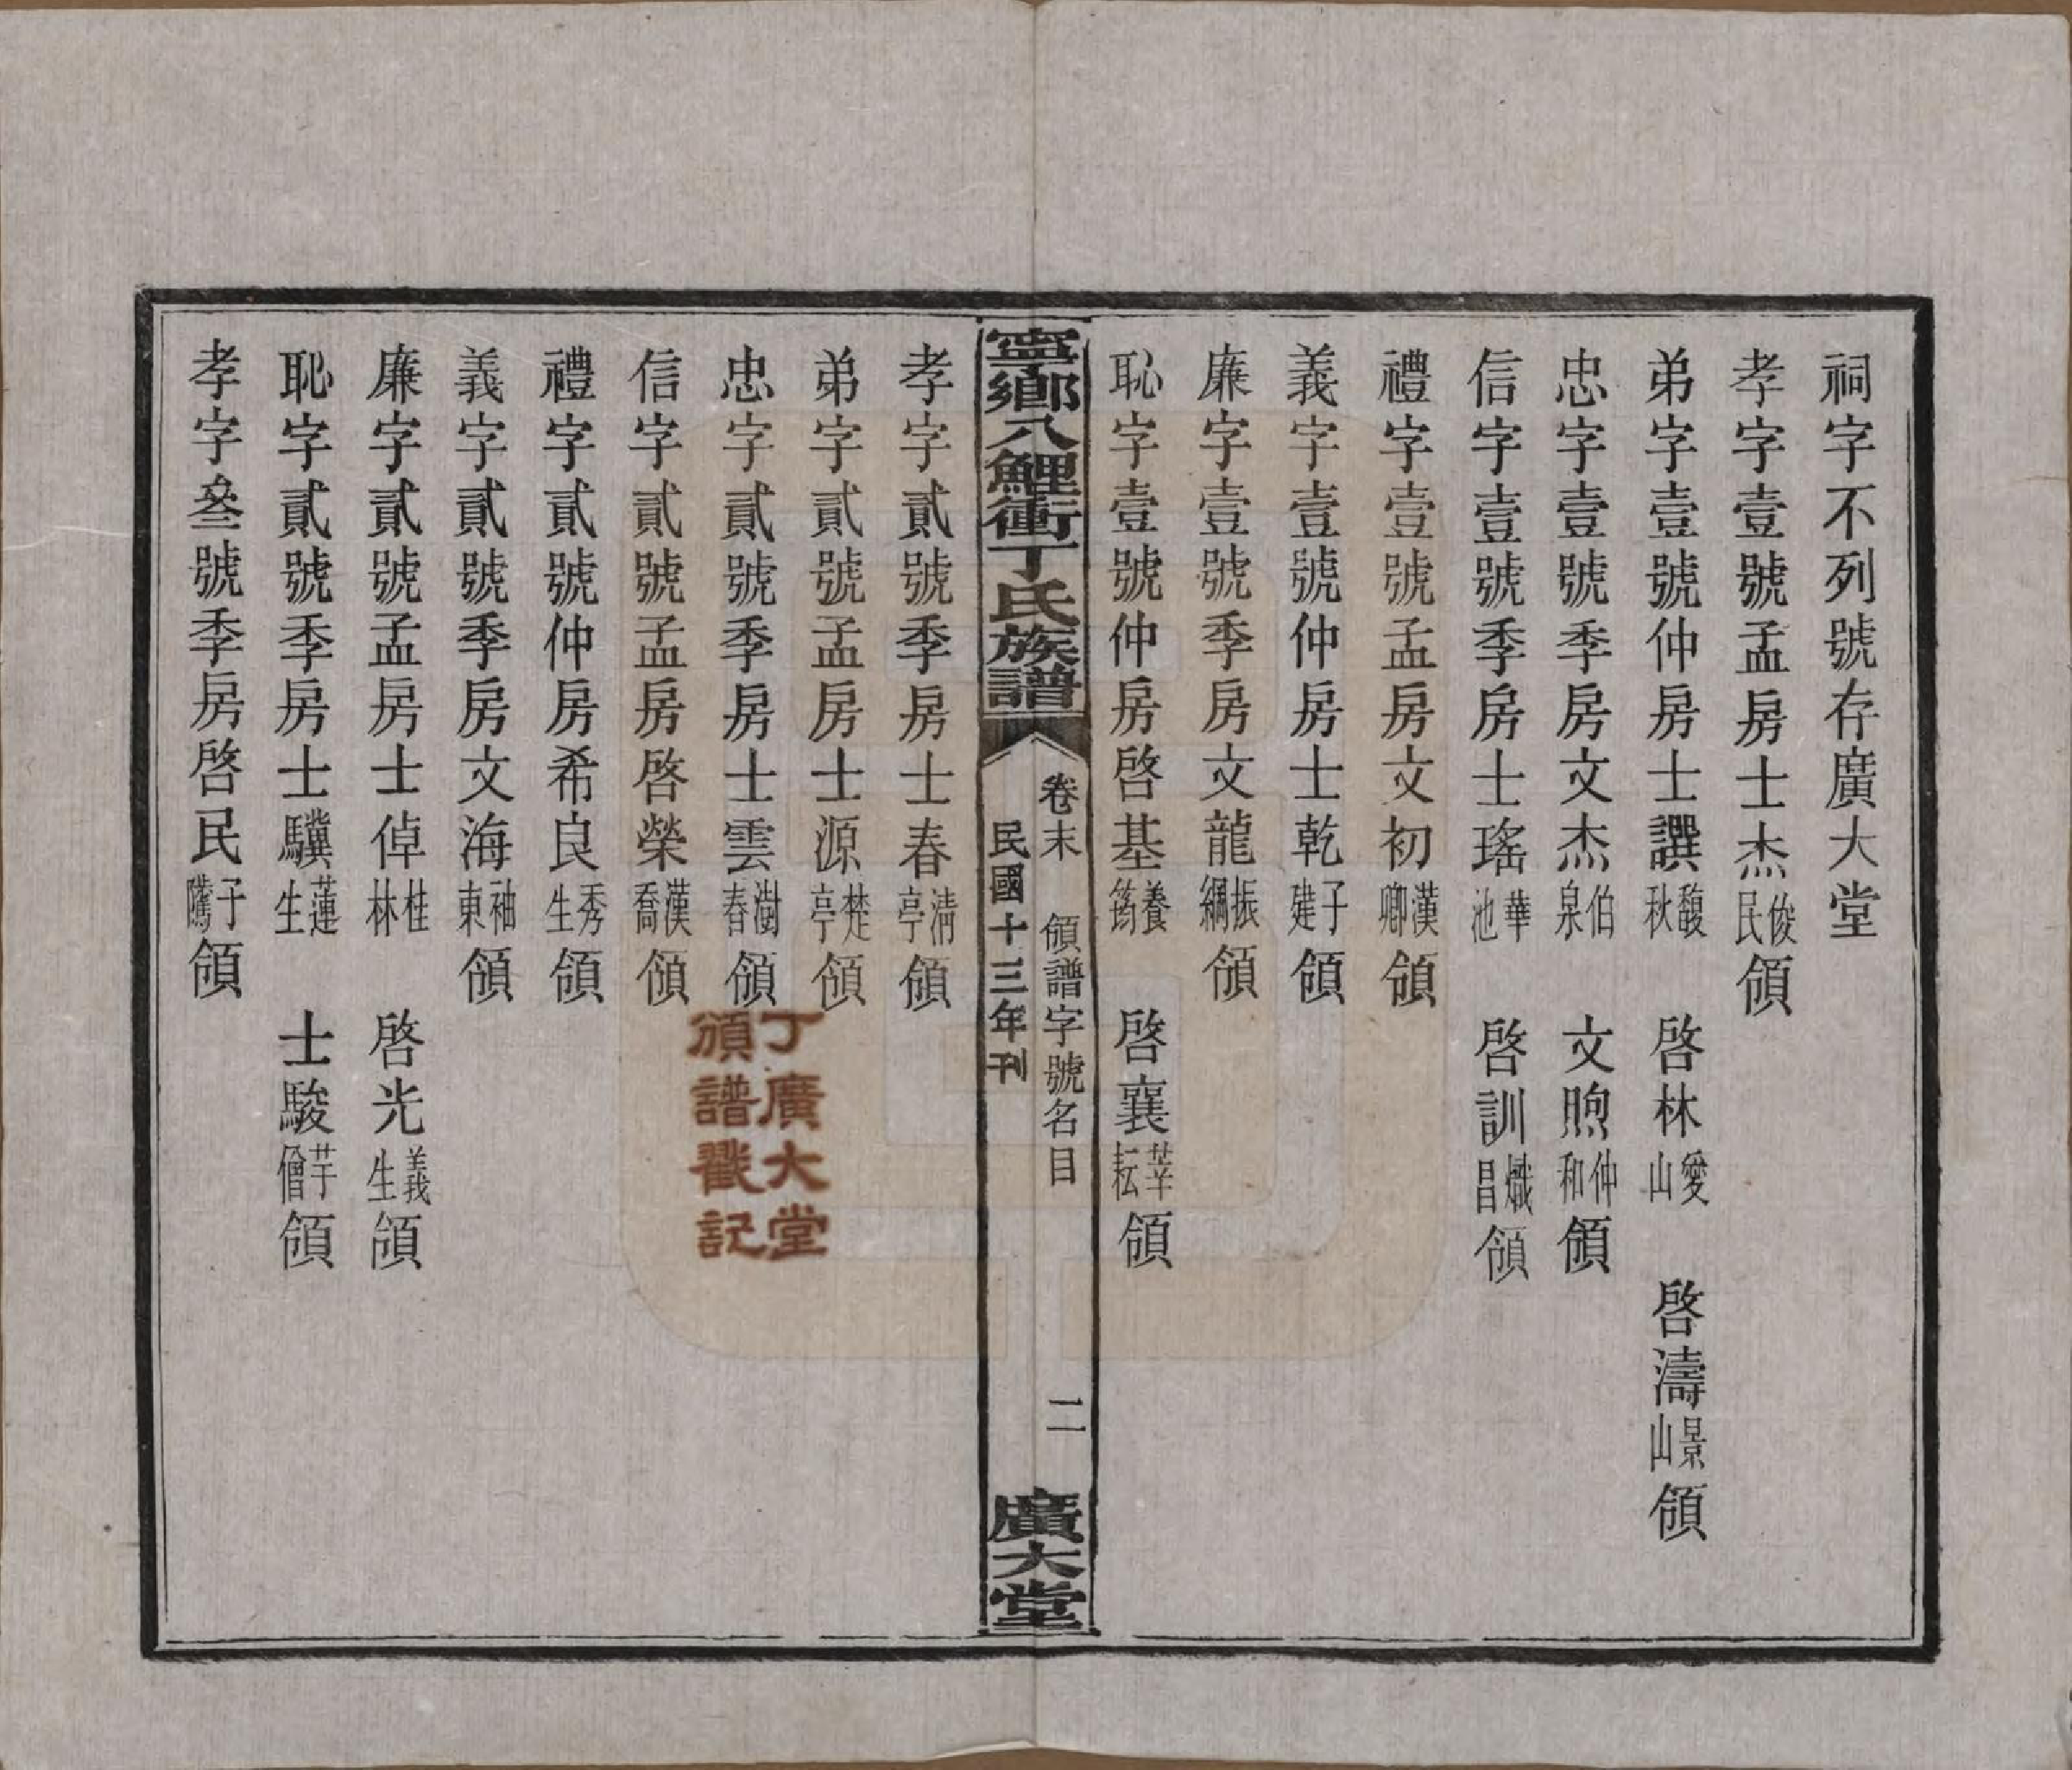 祠字不列號存廣大堂
孝字壹號孟房士杰俊民領
弟字壹號仲房士譔馥秋　啓林愛山　啓濤景山領
忠字壹號季房文杰伯泉　文煦仲和領
信字壹號季房士瑤華池　啓訓熾昌領
禮字壹號孟房文初漢卿領
義字壹號仲房士乾子建領
廉字壹號季房文龍振綱領
恥字壹號仲房啓基養筠　啓襄莘耘領
寧鄉八鯉衝丁氏族譜
卷末　領譜字號名目　二
民國十三年刊
廣大堂
孝字貳號季房士春清亭領
弟字貳號孟房士源楚亭領
忠字貳號季房士雲澍春領
信字貳號孟房啓榮漢喬領
禮字貳號仲房希良秀生領
義字貳號季房文海袖東領
廉字貳號孟房士倬桂林　啓光義生領
恥字貳號季房士驥蓮生　士駿芋僧領
孝字叄號季房啓民子騰領
丁廣大堂
頒譜戳記